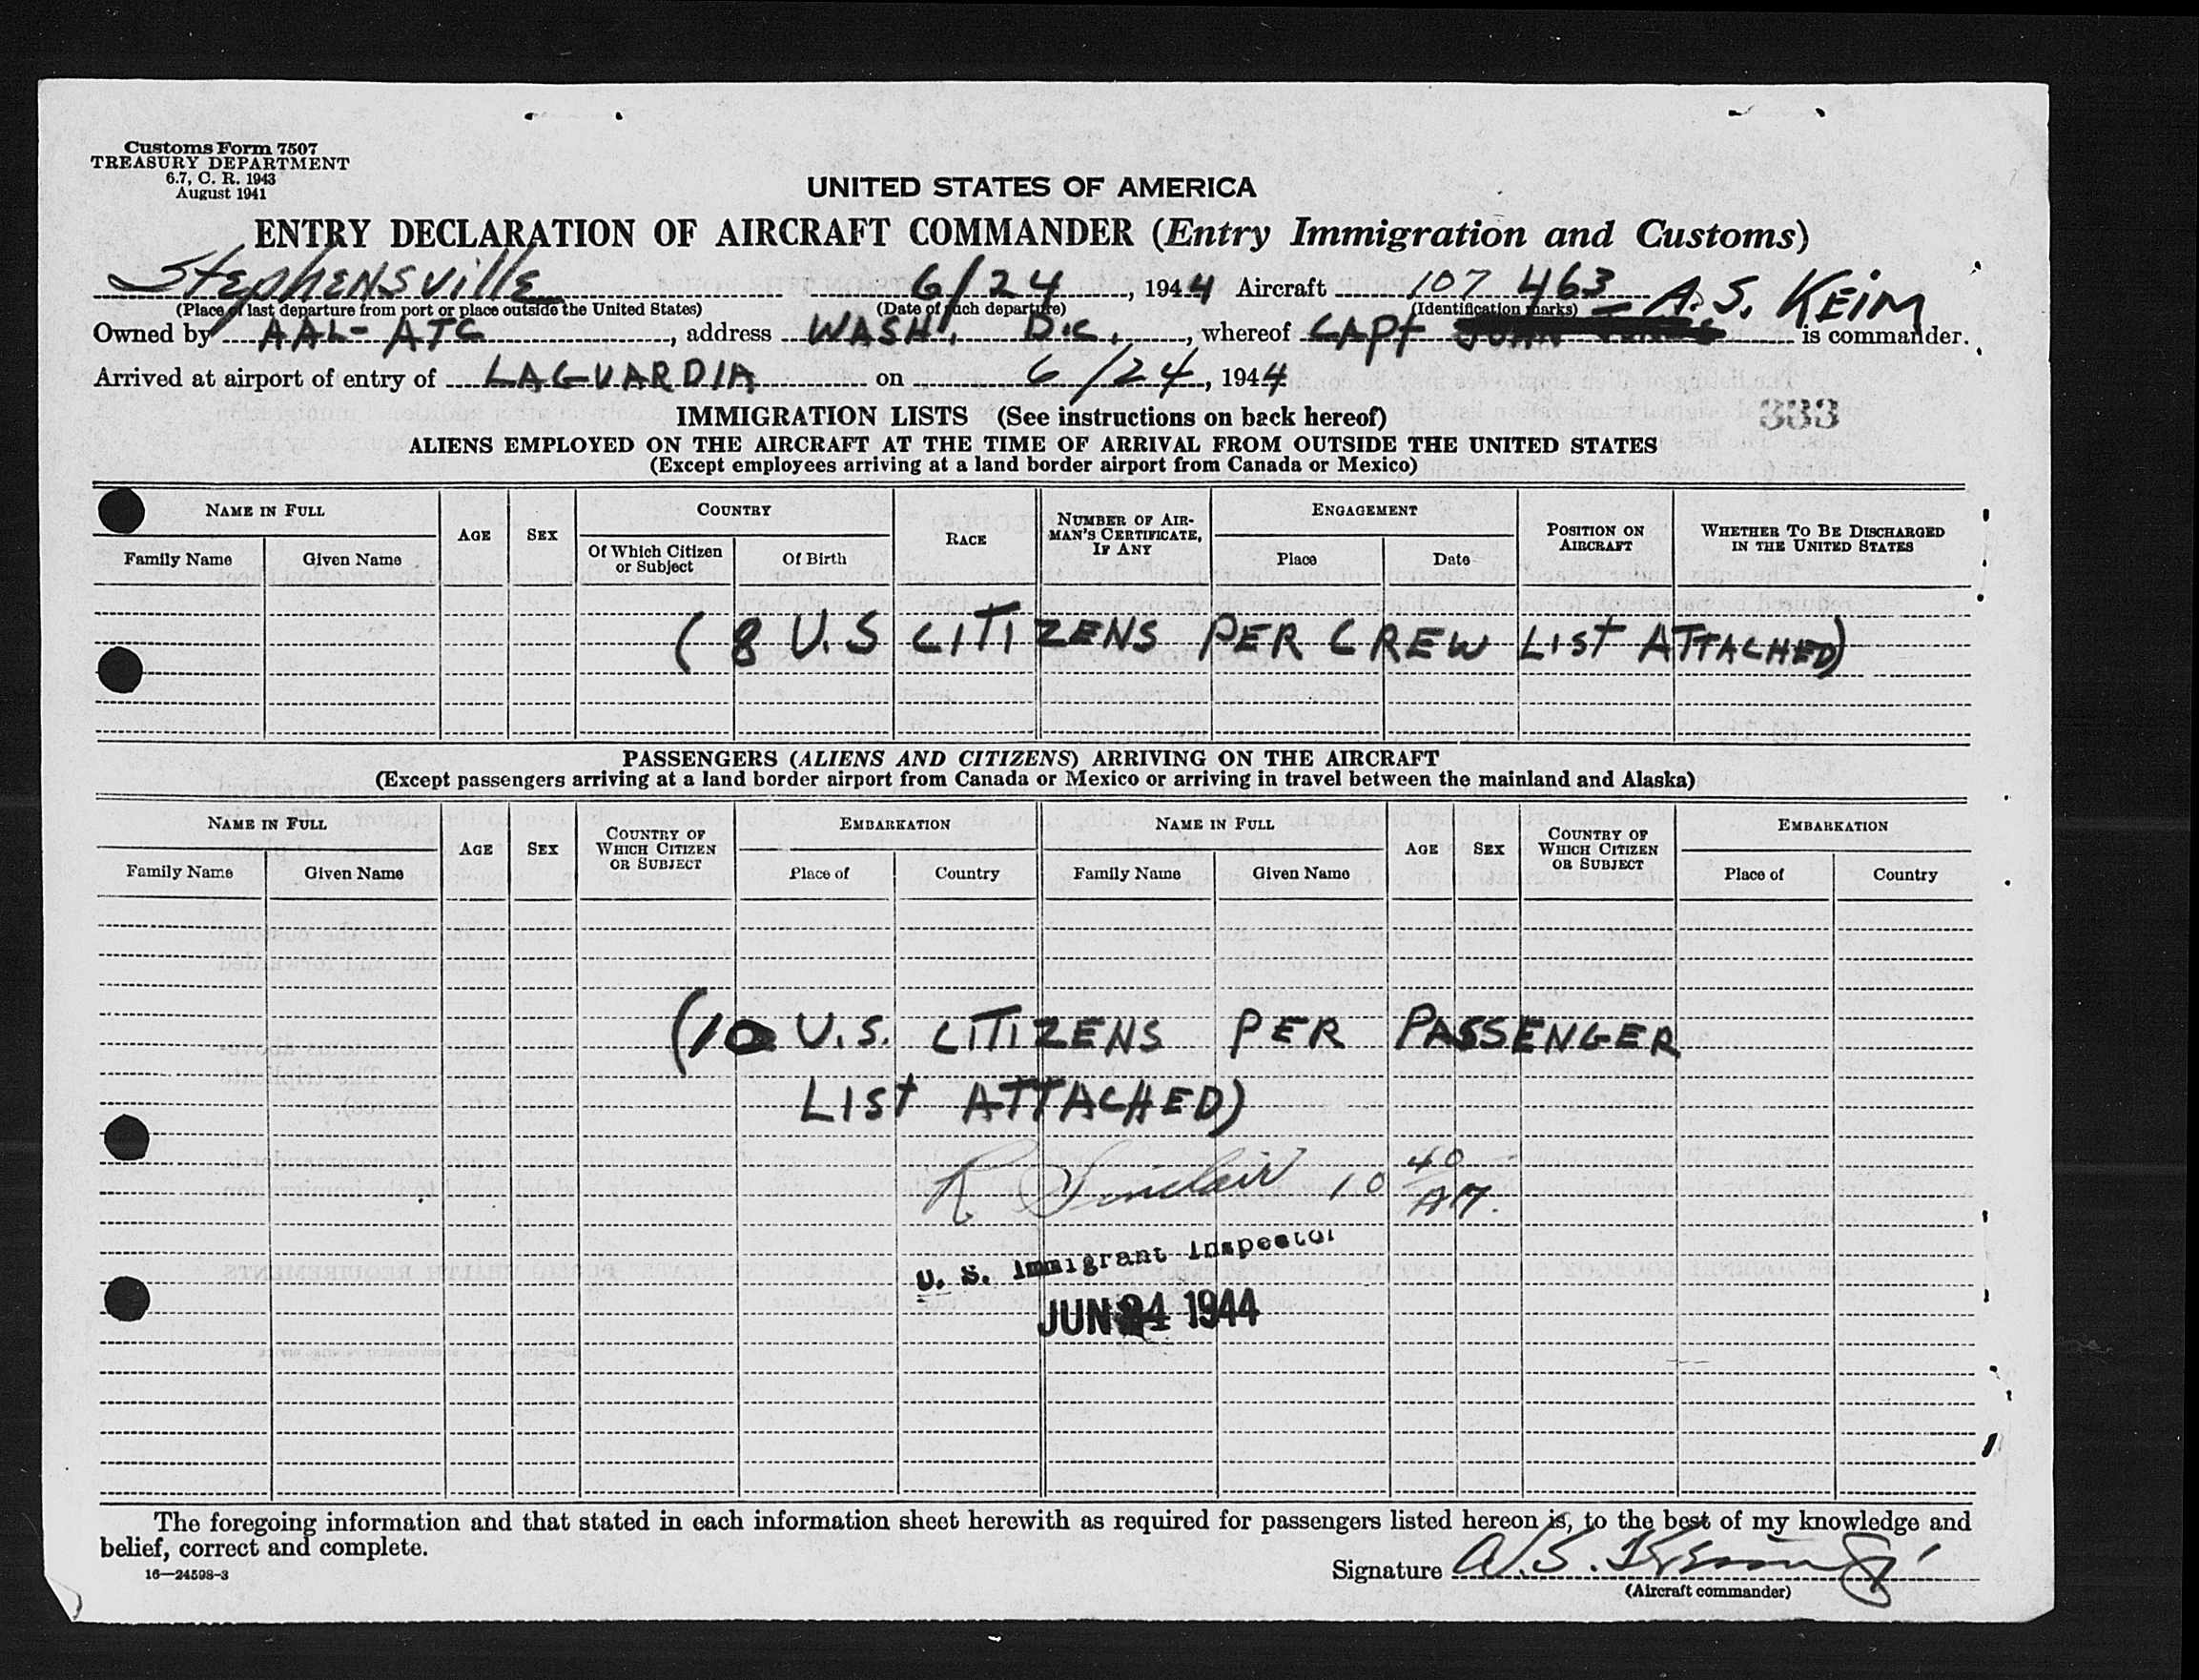 Customs Form 7507
TREASURY DEPARTMENT
6.7, C. R. 1943
August 1941
UNITED STATES OF AMERICA
ENTRY DECLARATION OF AIRCRAFT COMMANDER (Entry Immigration and Customs)
Stephensville 6/24, 1944 Aircraft 107 463 A.S. KEIM
(Place of last departure from port or place outside the United States) (Date of such departure) (Identification marks)
Owned by AAL-ATC, address WASH. D.C., whereof CAPT is commander.
Arrived at airport of entry of LAGUARDIA on 6/24, 1944
IMMIGRATION LISTS (See instructions on back hereof)
333
ALIENS EMPLOYED ON THE AIRCRAFT AT THE TIME OF ARRIVAL FROM OUTSIDE THE UNITED STATES
(Except employees arriving at a land border airport from Canada or Mexico)
NAME IN FULL AGE SEX COUNTRY RACE NUMBER OF AIRMAN'S CERTIFICATE, IF ANY ENGAGEMENT POSITION ON AIRCRAFT WHETHER TO BE DISCHARGED IN THE UNITED STATES
Family Name Given Name Of Which Citizen or Subject Of Birth Place Date
( 8 U.S CITIZENS PER CREW LIST ATTACHED)
PASSENGERS (ALIENS AND CITIZENS) ARRIVING ON THE AIRCRAFT
(Except passengers arriving at a land border airport from Canada or Mexico or arriving in travel between the mainland and Alaska)
NAME IN FULL AGE SEX COUNTRY OF WHICH CITIZEN OR SUBJECT EMBARKATION NAME IN FULL AGE SEX COUNTRY OF WHICH CITIZEN OR SUBJECT EMBARKATION
Family Name Given Name Place of Country Family Name Given Name Place of Country
(10 U.S. CITIZENS PER PASSENGER
LIST ATTACHED)
R Sinclair 10 40 AM.
U. S. Immigrant Inspector
JUN 24 1944
The foregoing information and that stated in each information sheet herewith as required for passengers listed hereon is, to the best of my knowledge and
belief, correct and complete.
16—24598-3
Signature A.S. Keim Jr
(Aircraft commander)